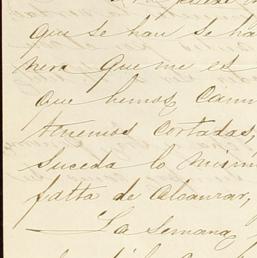 que se han se ha
nera que me es
que hemos cam
tenemos cortadas,
suceda lo mism
falta de alcanzar,
La semana